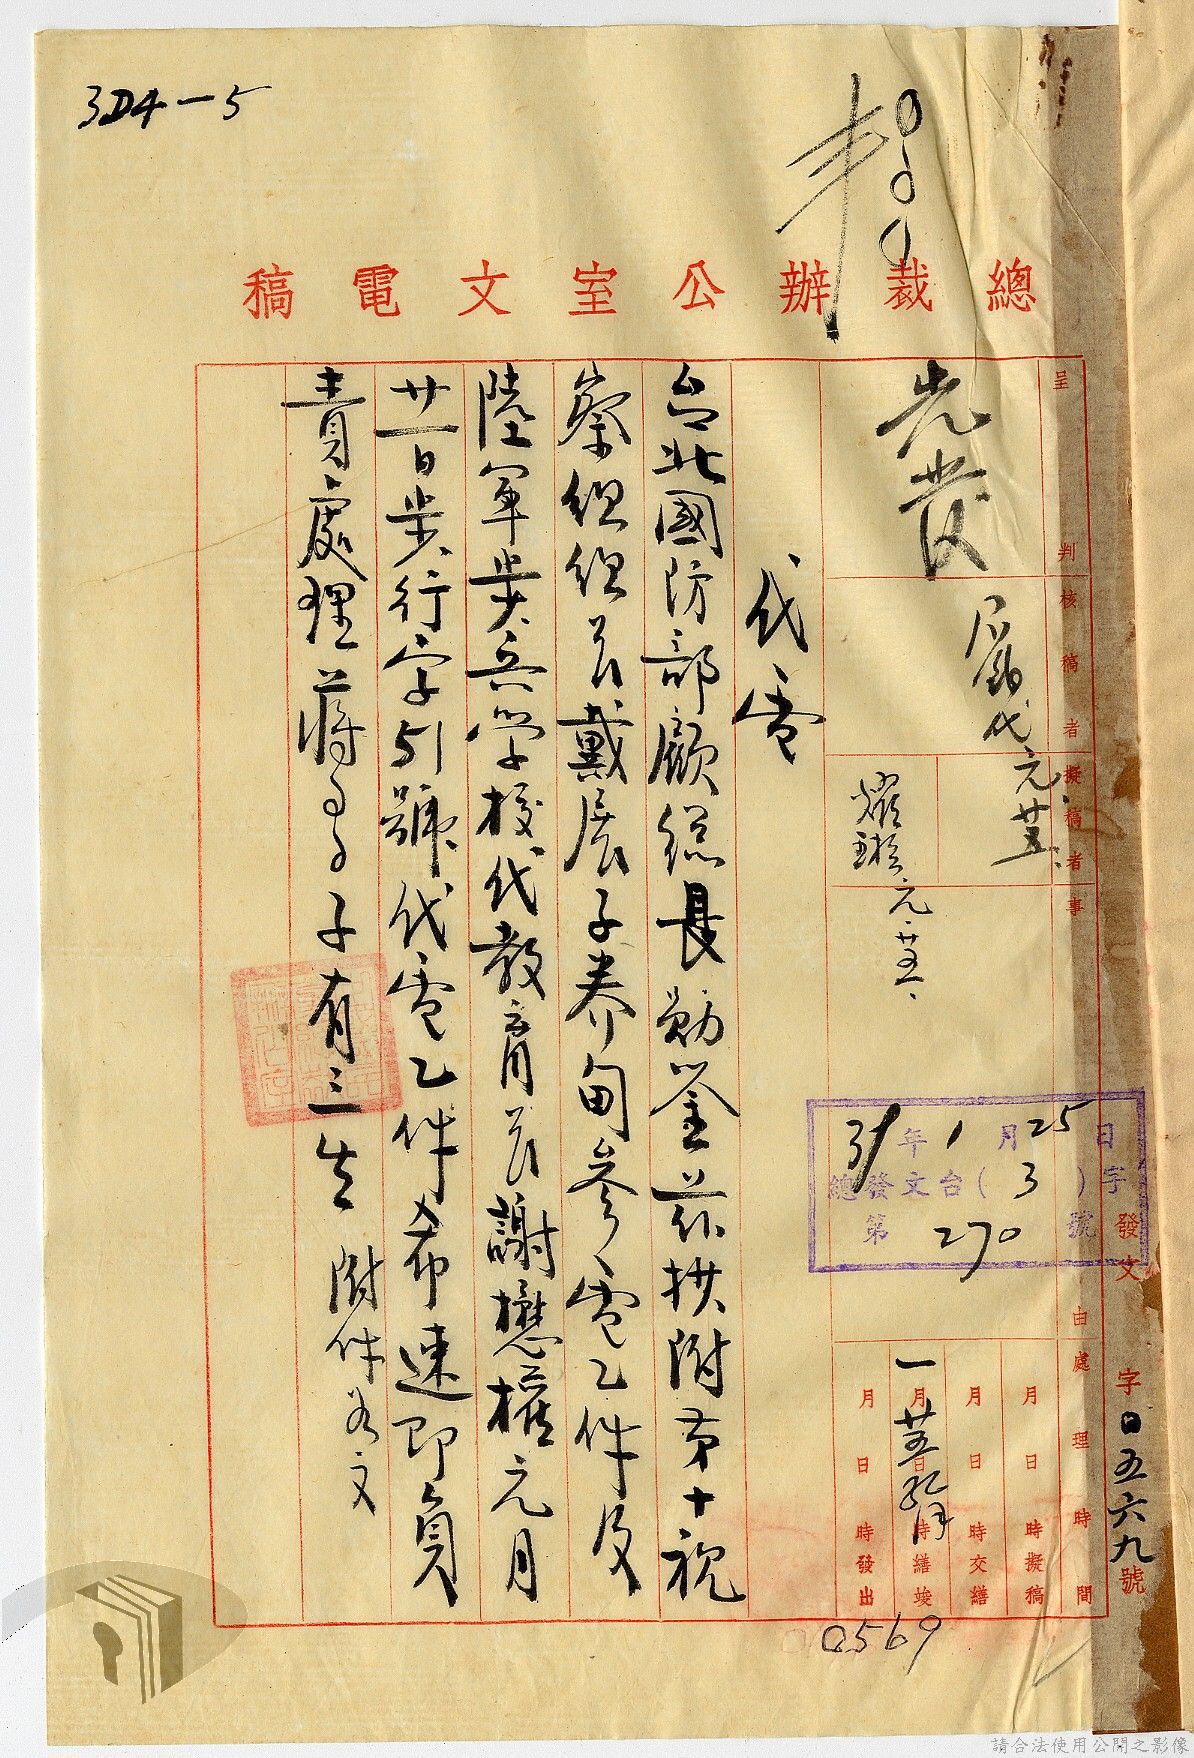 3D4-5
總裁辦公室文電稿
呈判
先發
核稿者
代 元.廿五.
擬稿者
元.廿五.
事由
39年1月25日
總發文台(3)字
第270號
發文 字0五六九號
處理時間
月日時擬稿
月日時交繕
一月廿五日 時繕竣
月日時發出
代電
台北國防部顧總長勛鑒茲抄附第十視
察組組長戴展子養甸參電乙件及
陸軍步兵學校代教育長謝懋權元月
廿一日步行字51號代電乙件希速即負
責處理蔣〇〇子有三生 附件如文
0569
請合法使用公開之影像